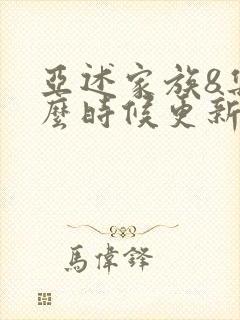 亞述家族&
麼時候更新
馬偉鐸